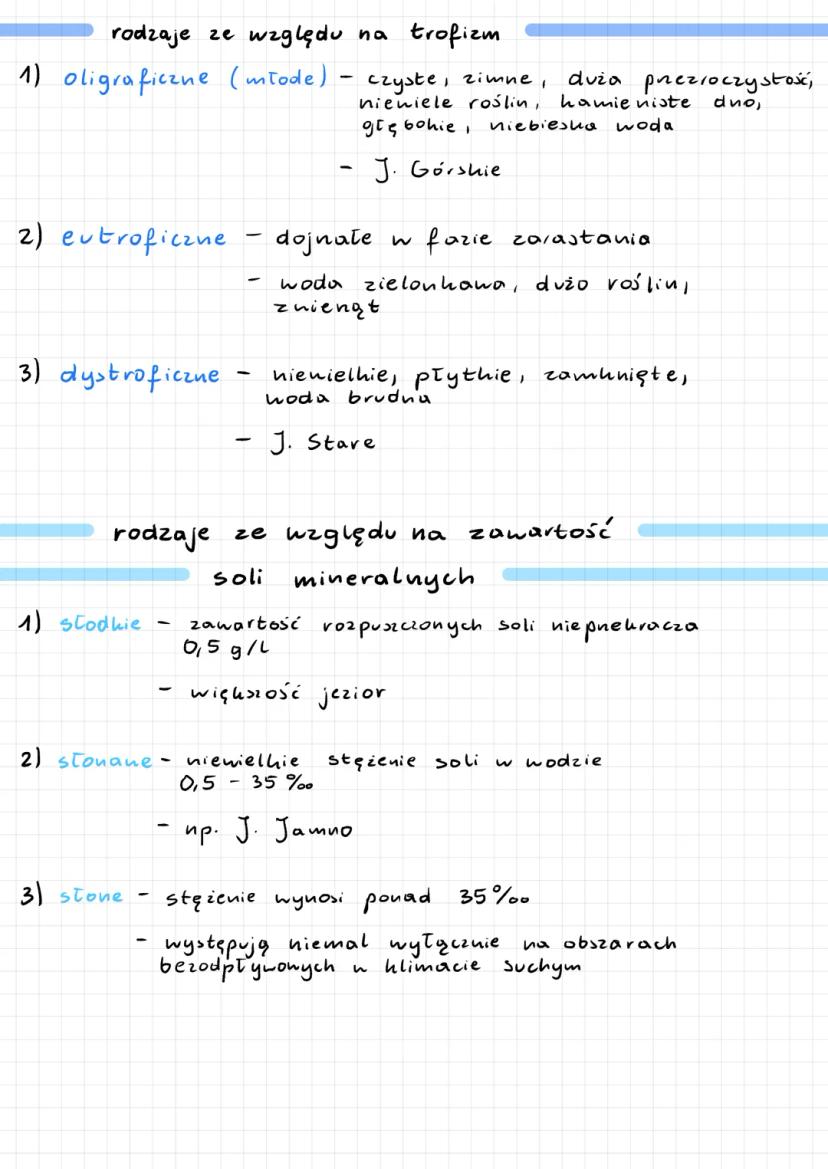 rodzaje ze względu na trofizm
1) oligraficzne (młode) - czyste, zimne, duża przezroczystość,
niewiele roślin, kamieniste dno,
głębokie, niebieska woda
- J. Górskie
2) eutroficzne - dojrzałe w fazie zarastania
- woda zielonkawa, dużo roślin,
zwierząt
3) dystroficzne - niewielkie, płytkie, zamknięte,
woda brudna
- J. Stare
rodzaje ze względu na zawartość
soli mineralnych
1) słodkie - zawartość rozpuszczonych soli nie przekracza
0,5 g/l
- większość jezior
2) słonawe - niewielkie stężenie soli w wodzie
0,5 - 35 ‰
- np. J. Jamno
3) słone - stężenie wynosi ponad 35‰
- występują niemal wyłącznie na obszarach
bezodpływowych w klimacie suchym